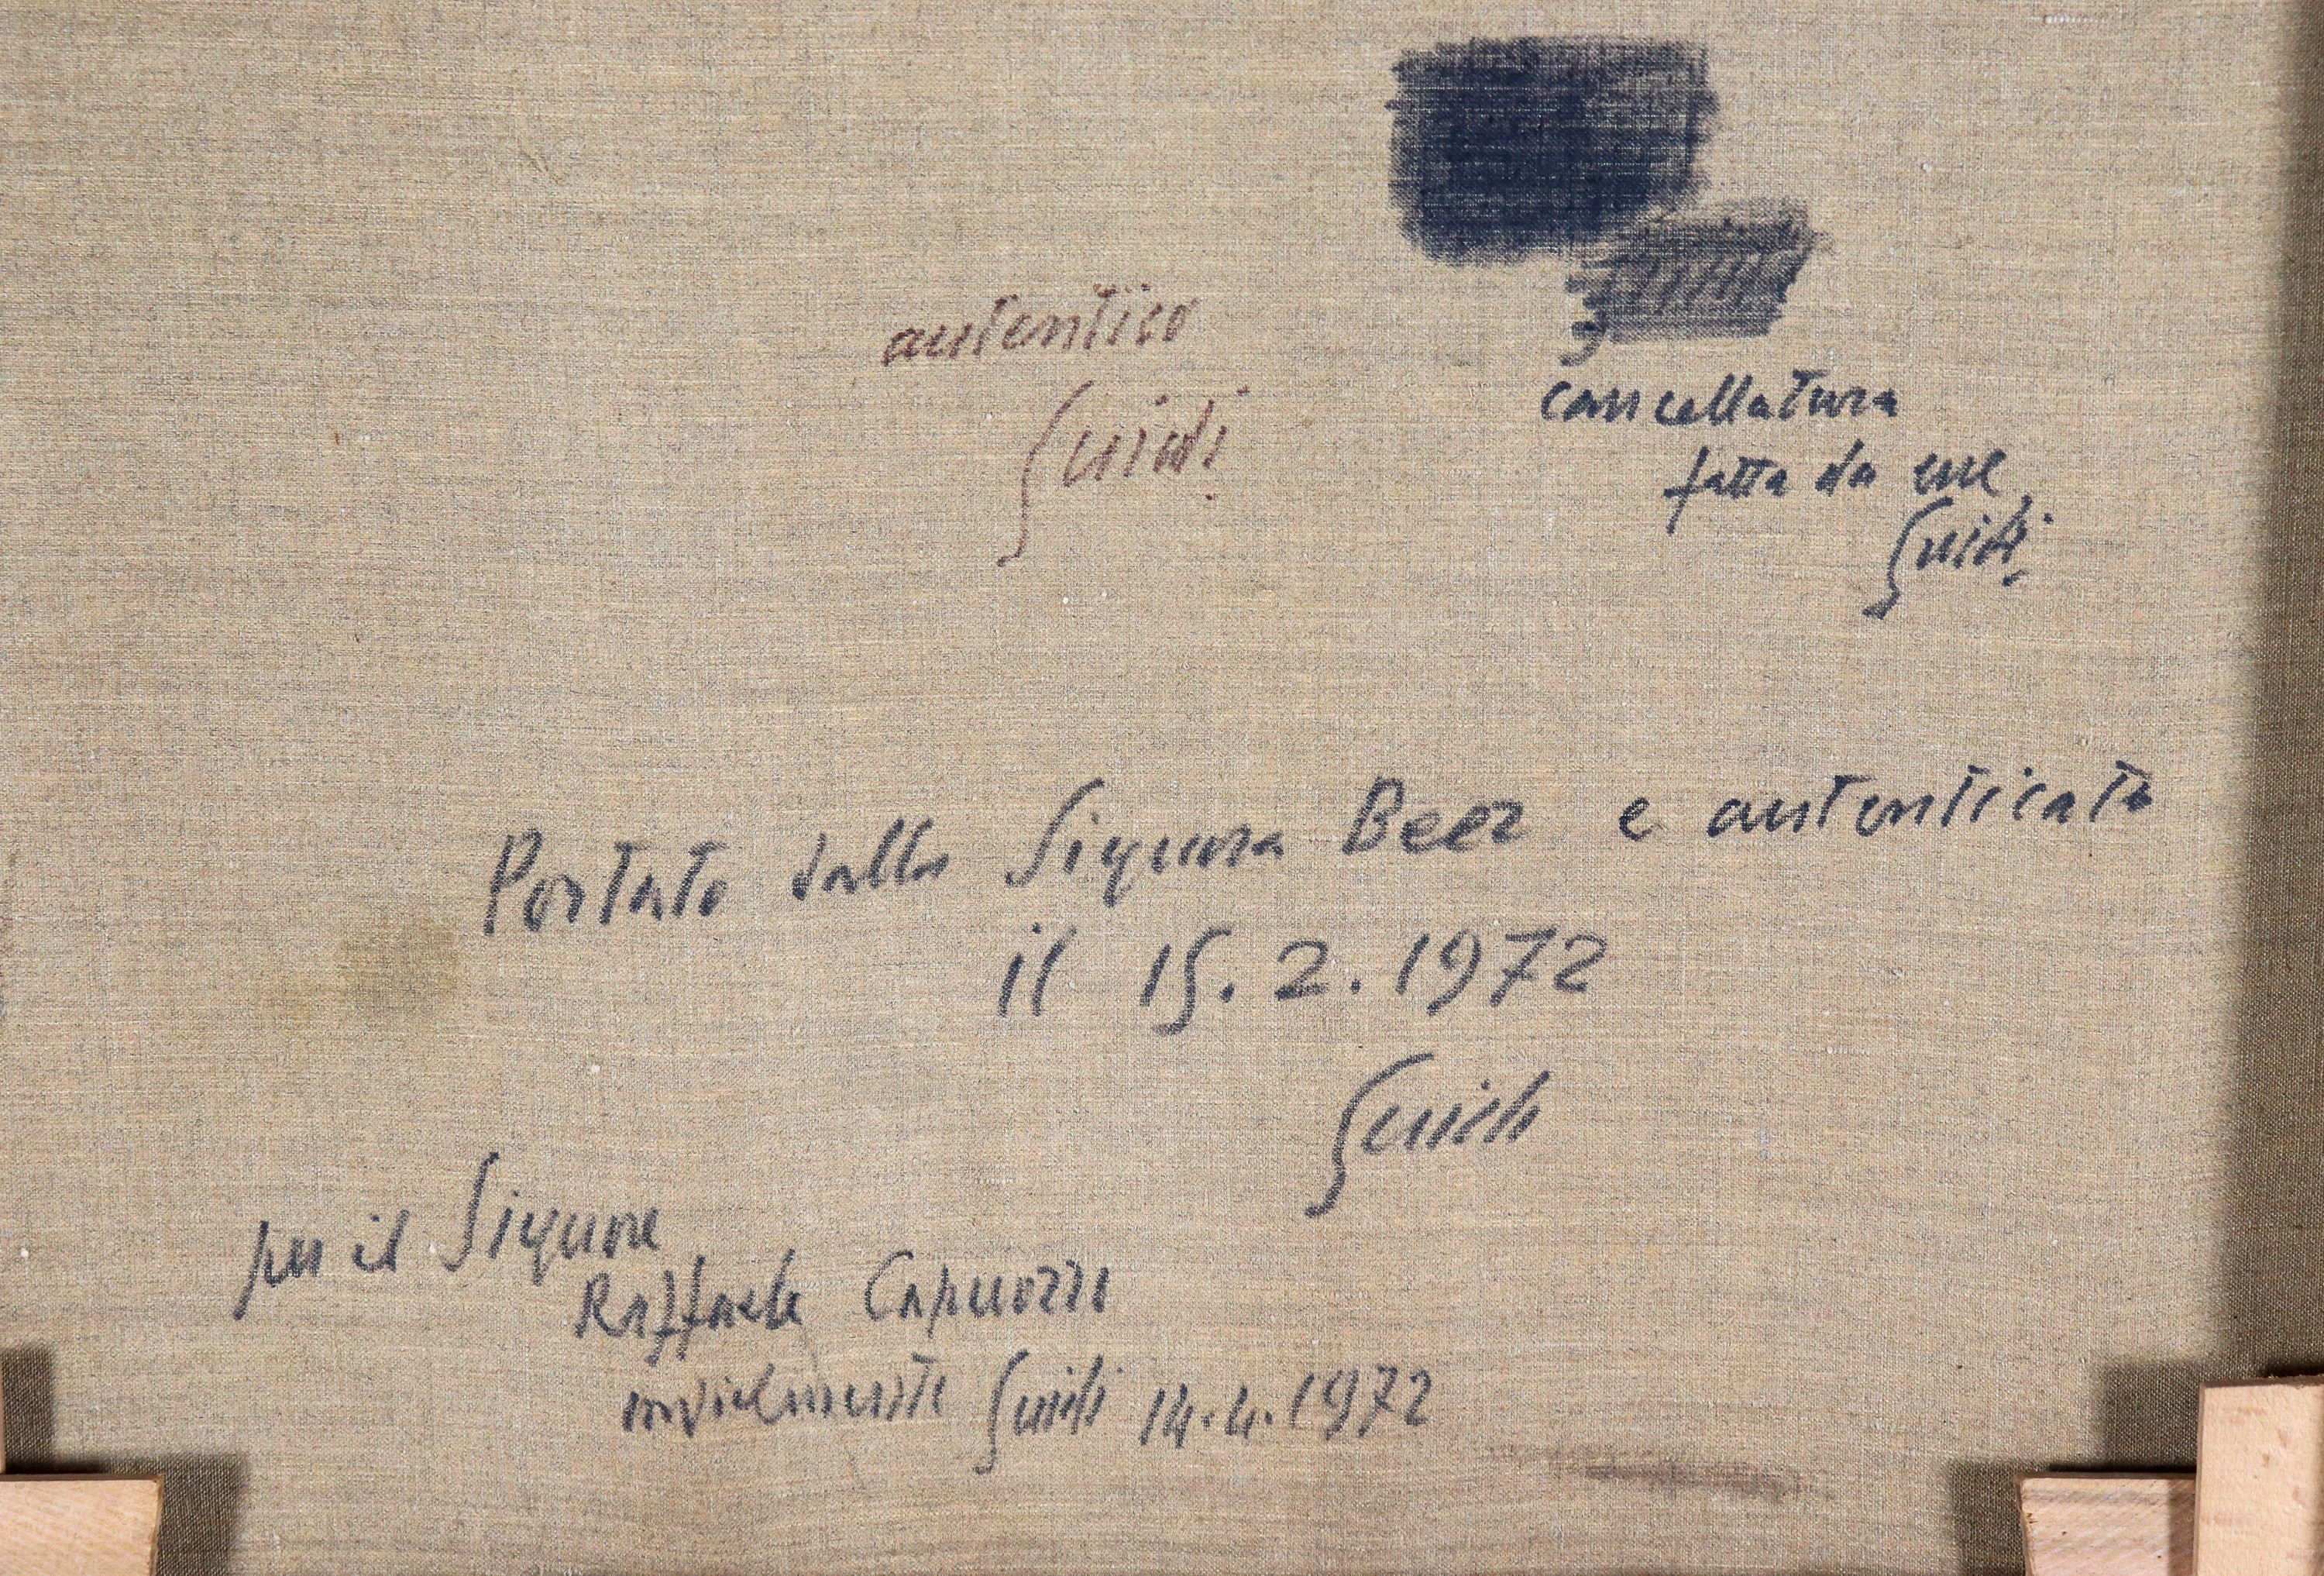 autentico
Guidi
cancellatura
fatta da me
Guidi
Portato dalla Signora Beer e autenticato
il 15.2.1972
Guidi
per il Signore
Raffaele Capuozzo
Guidi 14.4.1972